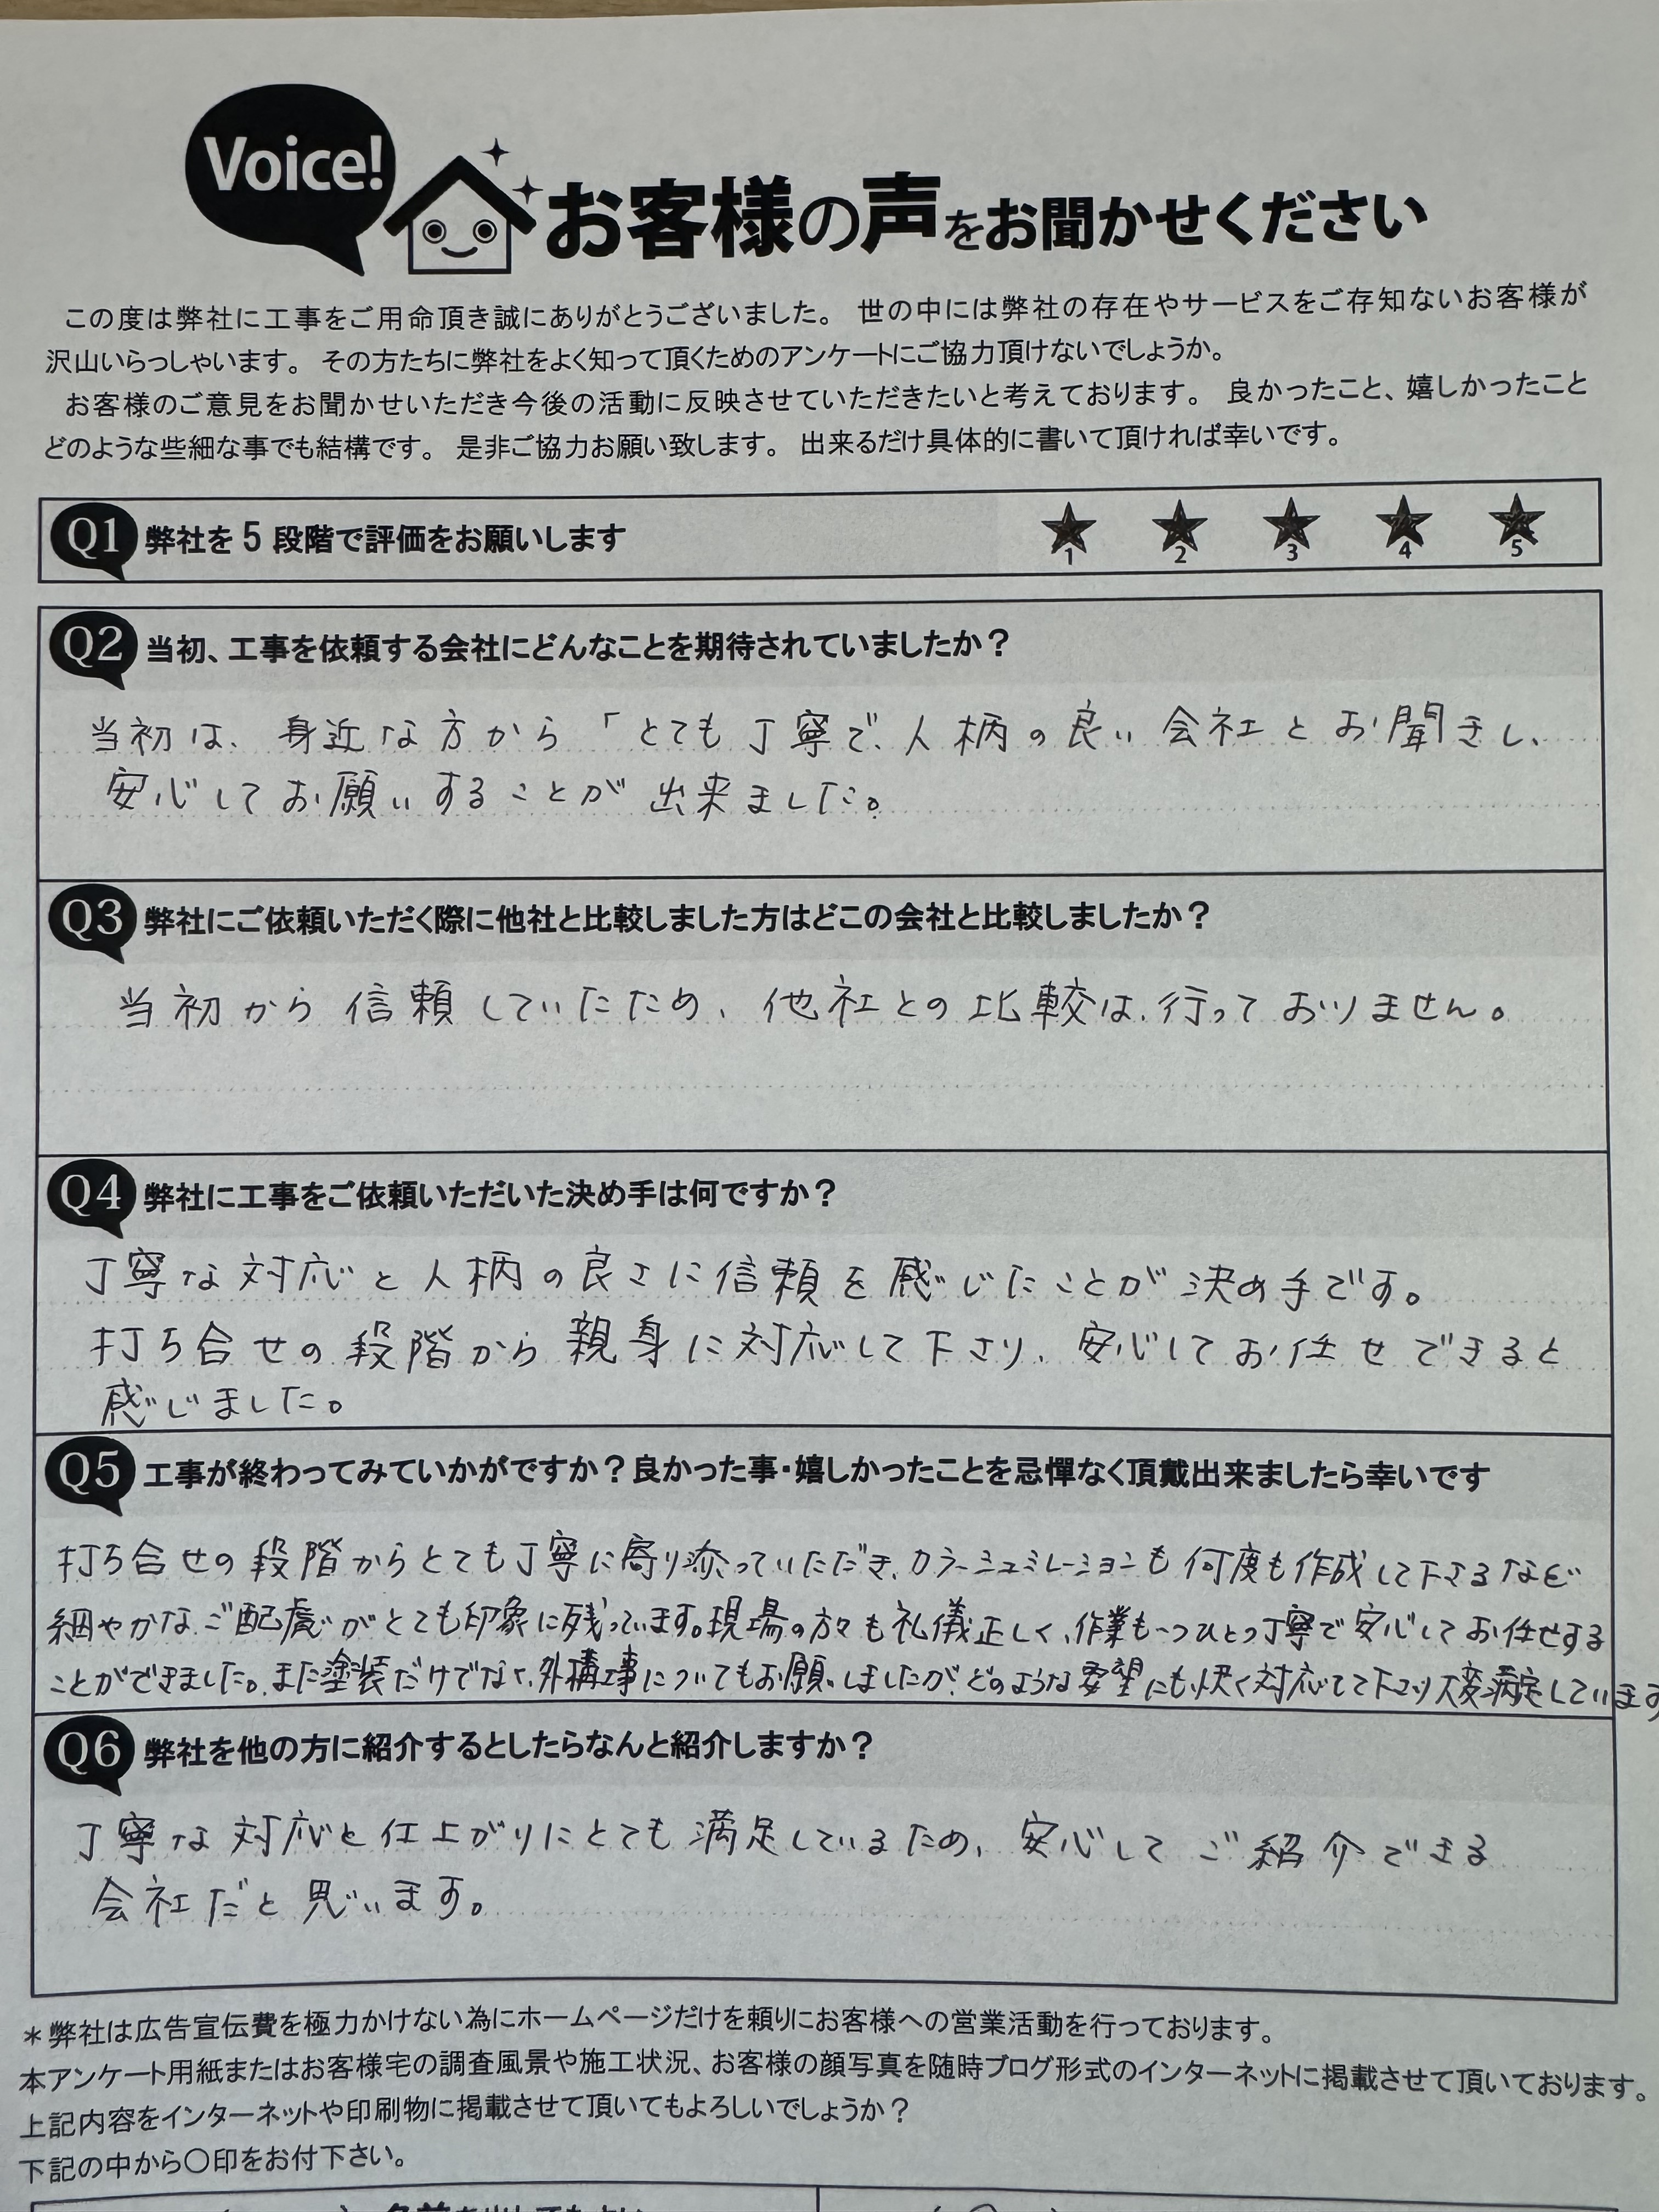 Voice!
お客様の声をお聞かせください
この度は弊社に工事をご用命頂き誠にありがとうございました。 世の中には弊社の存在やサービスをご存知ないお客様が
沢山いらっしゃいます。 その方たちに弊社をよく知って頂くためのアンケートにご協力頂けないでしょうか。
お客様のご意見をお聞かせいただき今後の活動に反映させていただきたいと考えております。 良かったこと、嬉しかったこと
どのような些細な事でも結構です。 是非ご協力お願い致します。 出来るだけ具体的に書いて頂ければ幸いです。
Q1 弊社を5段階で評価をお願いします ★1 ★2 ★3 ★4 ★5
Q2 当初、工事を依頼する会社にどんなことを期待されていましたか？
当初は、身近な方から「とても丁寧で、人柄の良い会社とお聞きし、
安心してお願いすることが出来ました。
Q3 弊社にご依頼いただく際に他社と比較しました方はどこの会社と比較しましたか？
当初から信頼していたため、他社との比較は、行っておりません。
Q4 弊社に工事をご依頼いただいた決め手は何ですか？
丁寧な対応と人柄の良さに信頼を感じたことが決め手です。
打ち合せの段階から親身に対応して下さり、安心してお任せできると
感じました。
Q5 工事が終わってみていかがですか？良かった事・嬉しかったことを忌憚なく頂戴出来ましたら幸いです
打ち合せの段階からとても丁寧に寄り添っていただき、カラーシュミレーションも何度も作成して下さるなど
細やかなご配慮がとても印象に残っています。現場の方々も礼儀正しく、作業も一つひとつ丁寧で安心してお任せする
ことができました。また塗装だけでなく、外構工事についてもお願いしましたが、どのような要望にも快く対応して下さり大変満足しています
Q6 弊社を他の方に紹介するとしたらなんと紹介しますか？
丁寧な対応と仕上がりにとても満足しているため、安心してご紹介できる
会社だと思います。
＊弊社は広告宣伝費を極力かけない為にホームページだけを頼りにお客様への営業活動を行っております。
本アンケート用紙またはお客様宅の調査風景や施工状況、お客様の顔写真を随時ブログ形式のインターネットに掲載させて頂いております。
上記内容をインターネットや印刷物に掲載させて頂いてもよろしいでしょうか？
下記の中から〇印をお付下さい。